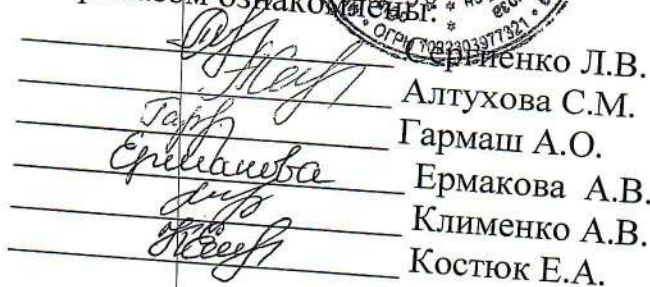 ознакомлены:
ОГРН 1092303977321
Сергиенко Л.В.
Алтухова С.М.
Гарм Гармаш А.О.
Ермакова Ермакова А.В.
Клименко А.В.
Костюк Е.А.